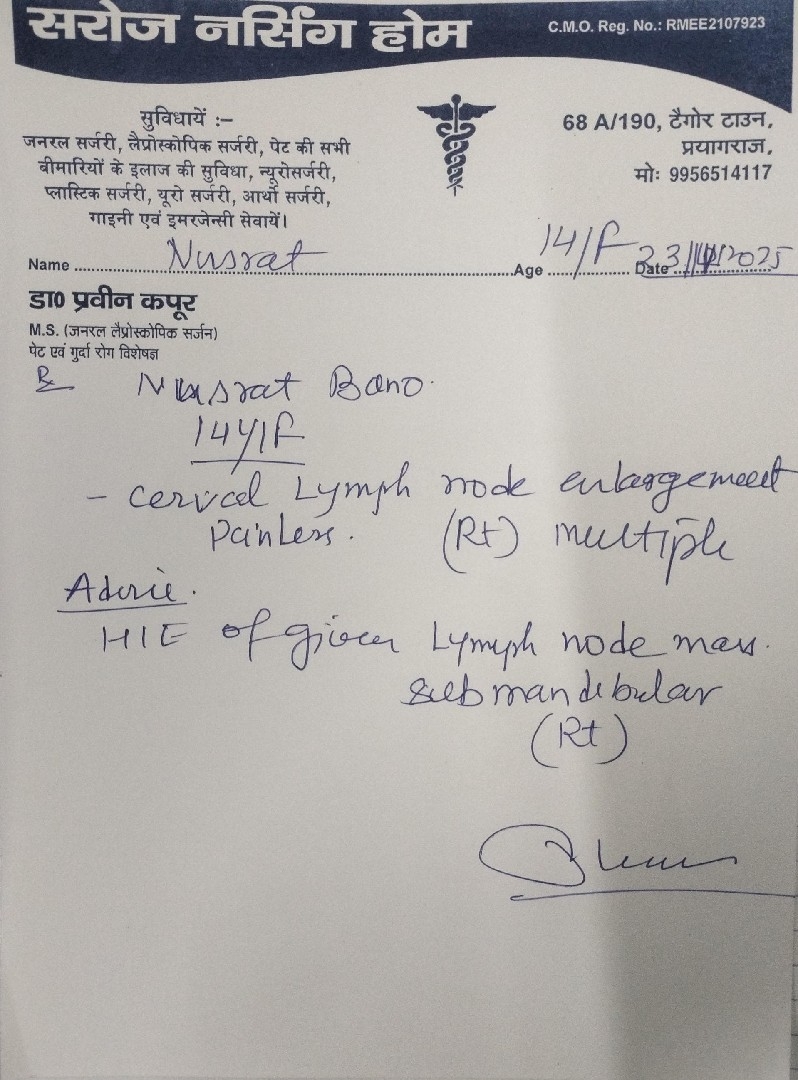 सरोज नर्सिंग होम
C.M.O. Reg. No.: RMEE2107923
सुविधायें :–
जनरल सर्जरी, लैप्रोस्कोपिक सर्जरी, पेट की सभी
बीमारियों के इलाज की सुविधा, न्यूरोसर्जरी,
प्लास्टिक सर्जरी, यूरो सर्जरी, आर्थो सर्जरी,
गाइनी एवं इमरजेन्सी सेवायें।
68 A/190, टैगोर टाउन,
प्रयागराज,
मोः 9956514117
Name Nusrat Age 14/F Date 23/ /2025
डा0 प्रवीन कपूर
M.S. (जनरल लैप्रोस्कोपिक सर्जन)
पेट एवं गुर्दा रोग विशेषज्ञ
Rx Nusrat Bano.
14Y/F
- cervcal Lymph node enlargement
Painless. (Rt) multiple
Advie.
HIE of given Lymph node mass.
submandibular
(Rt)